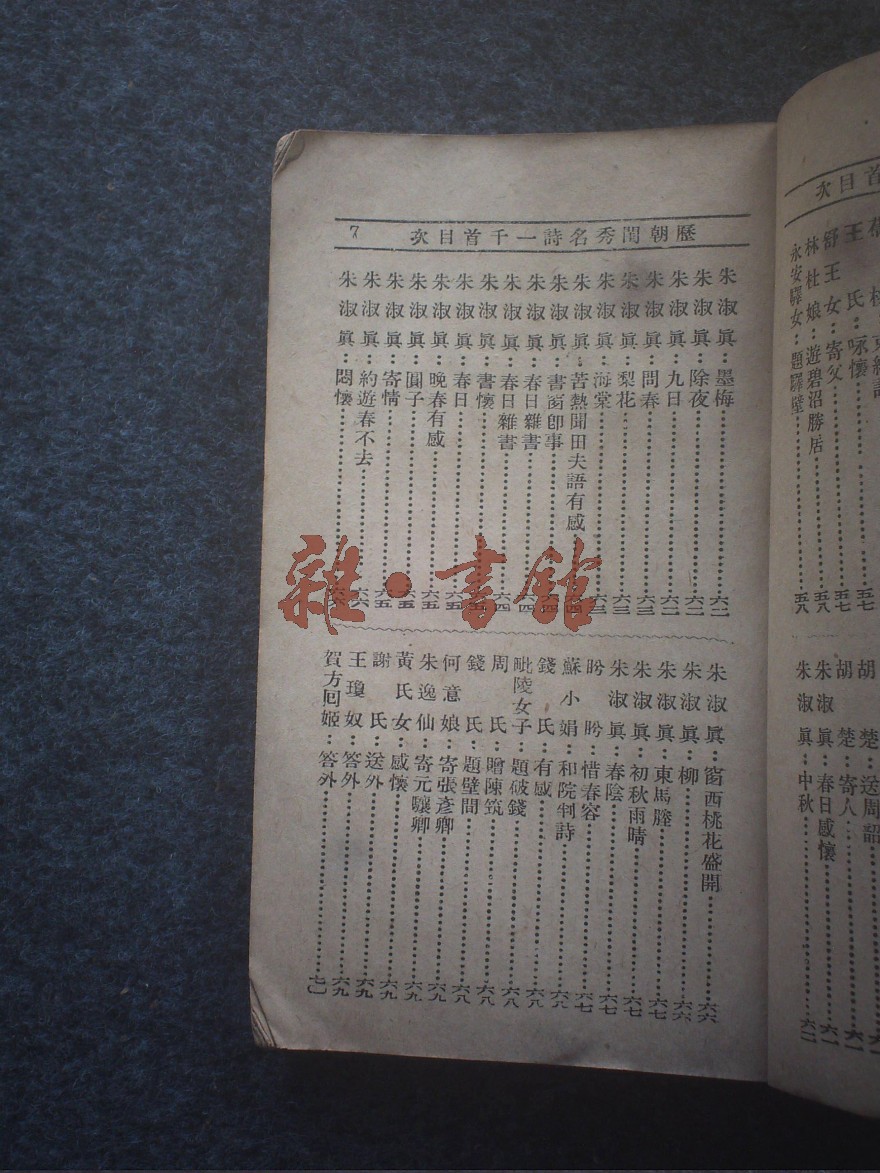 歷朝閨秀名詩一千首目次
7
朱淑眞：墨梅 六二
朱淑眞：除夜 六二
朱淑眞：九日 六二
朱淑眞：問春 六三
朱淑眞：梨花 六三
朱淑眞：海棠 六三
朱淑眞：苦熱聞田夫語有感 六四
朱淑眞：書窗卽事 六四
朱淑眞：春日雜書 六四
朱淑眞：春日雜書 六四
朱淑眞：書懷
朱淑眞：春日 六五
朱淑眞：晚春有感 六五
朱淑眞：圓子 六五
朱淑眞：寄情 六五
朱淑眞：約遊春不去 六六
朱淑眞：悶懷
朱淑眞：窗西桃花盛開 六六
朱淑眞：柳 六六
朱淑眞：東馬塍 六七
朱淑眞：初秋雨晴 六七
朱淑眞：春陰 六七
盼盼：惜春容 六七
蘇小娟：和院判詩 六八
錢氏：有感 六八
毗陵女子：題破錢 六八
周氏：贈陳筑 六八
錢氏：題壁間 六八
何意娘：寄張彥卿 六九
朱逸仙：寄元驤卿 六九
黃氏女：感懷 六九
謝氏：送外 六九
王瓊奴：答外 六九
賀方回姬：答外 七〇
雜·書館
首目次
王氏：咏懷 五七
舒王女：寄父 五七
林杜娘：遊碧沼勝居 五八
永安驛女：題驛壁 五八
胡楚：送周韶
胡楚：寄人
朱淑眞：春日感懷
朱淑眞：中秋 六二